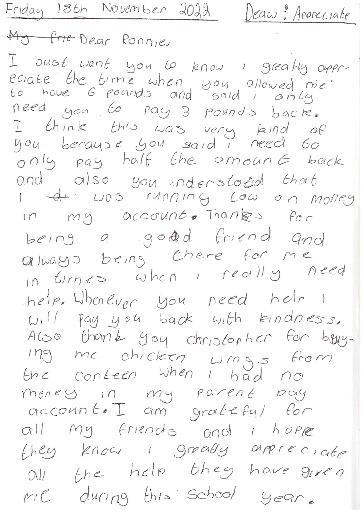 Friday 18th November 2022 Dear: Appreciate
My frie Dear Ronnie,
I oust want you to know i greatly appr-
eciate the time when you allowed me
to have 6 pounds and said i only
need you to pay 3 pounds back.
I think this was very kind of
you because you said i need to
only pay half the amount back
and also you understood that
I was running low on money
in my account. Thanks for
being a good friend and
always being there for me
in times when i really need
help. Whenever you need help i
will pay you back with kindness.
Also thank you christopher for buy-
ing me chicken wings from
the canteen when I had no
money in my parent pay
account. I am grateful for
all my friends and i hope
they know i greatly appreciate
all the help they have given
me during this school year.